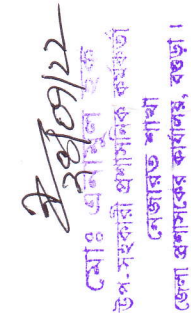 ২৭/০৭/২২
মোঃ এনামুল হক
উপ-সহকারী প্রশাসনিক কর্মকর্তা
নেজারত শাখা
জেলা প্রশাসকের কার্যালয়, বগুড়া।